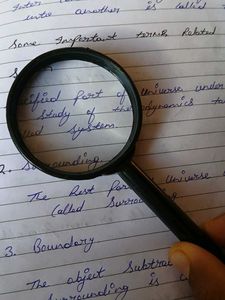 into another is called
Some Important terms Related
Specified Part of Universe under
study of thermodynamics
called System.
2. Surrounding.
The Rest Part Universe
Called Surrounding
3. Boundary
The object Subtrac
Surrounding is